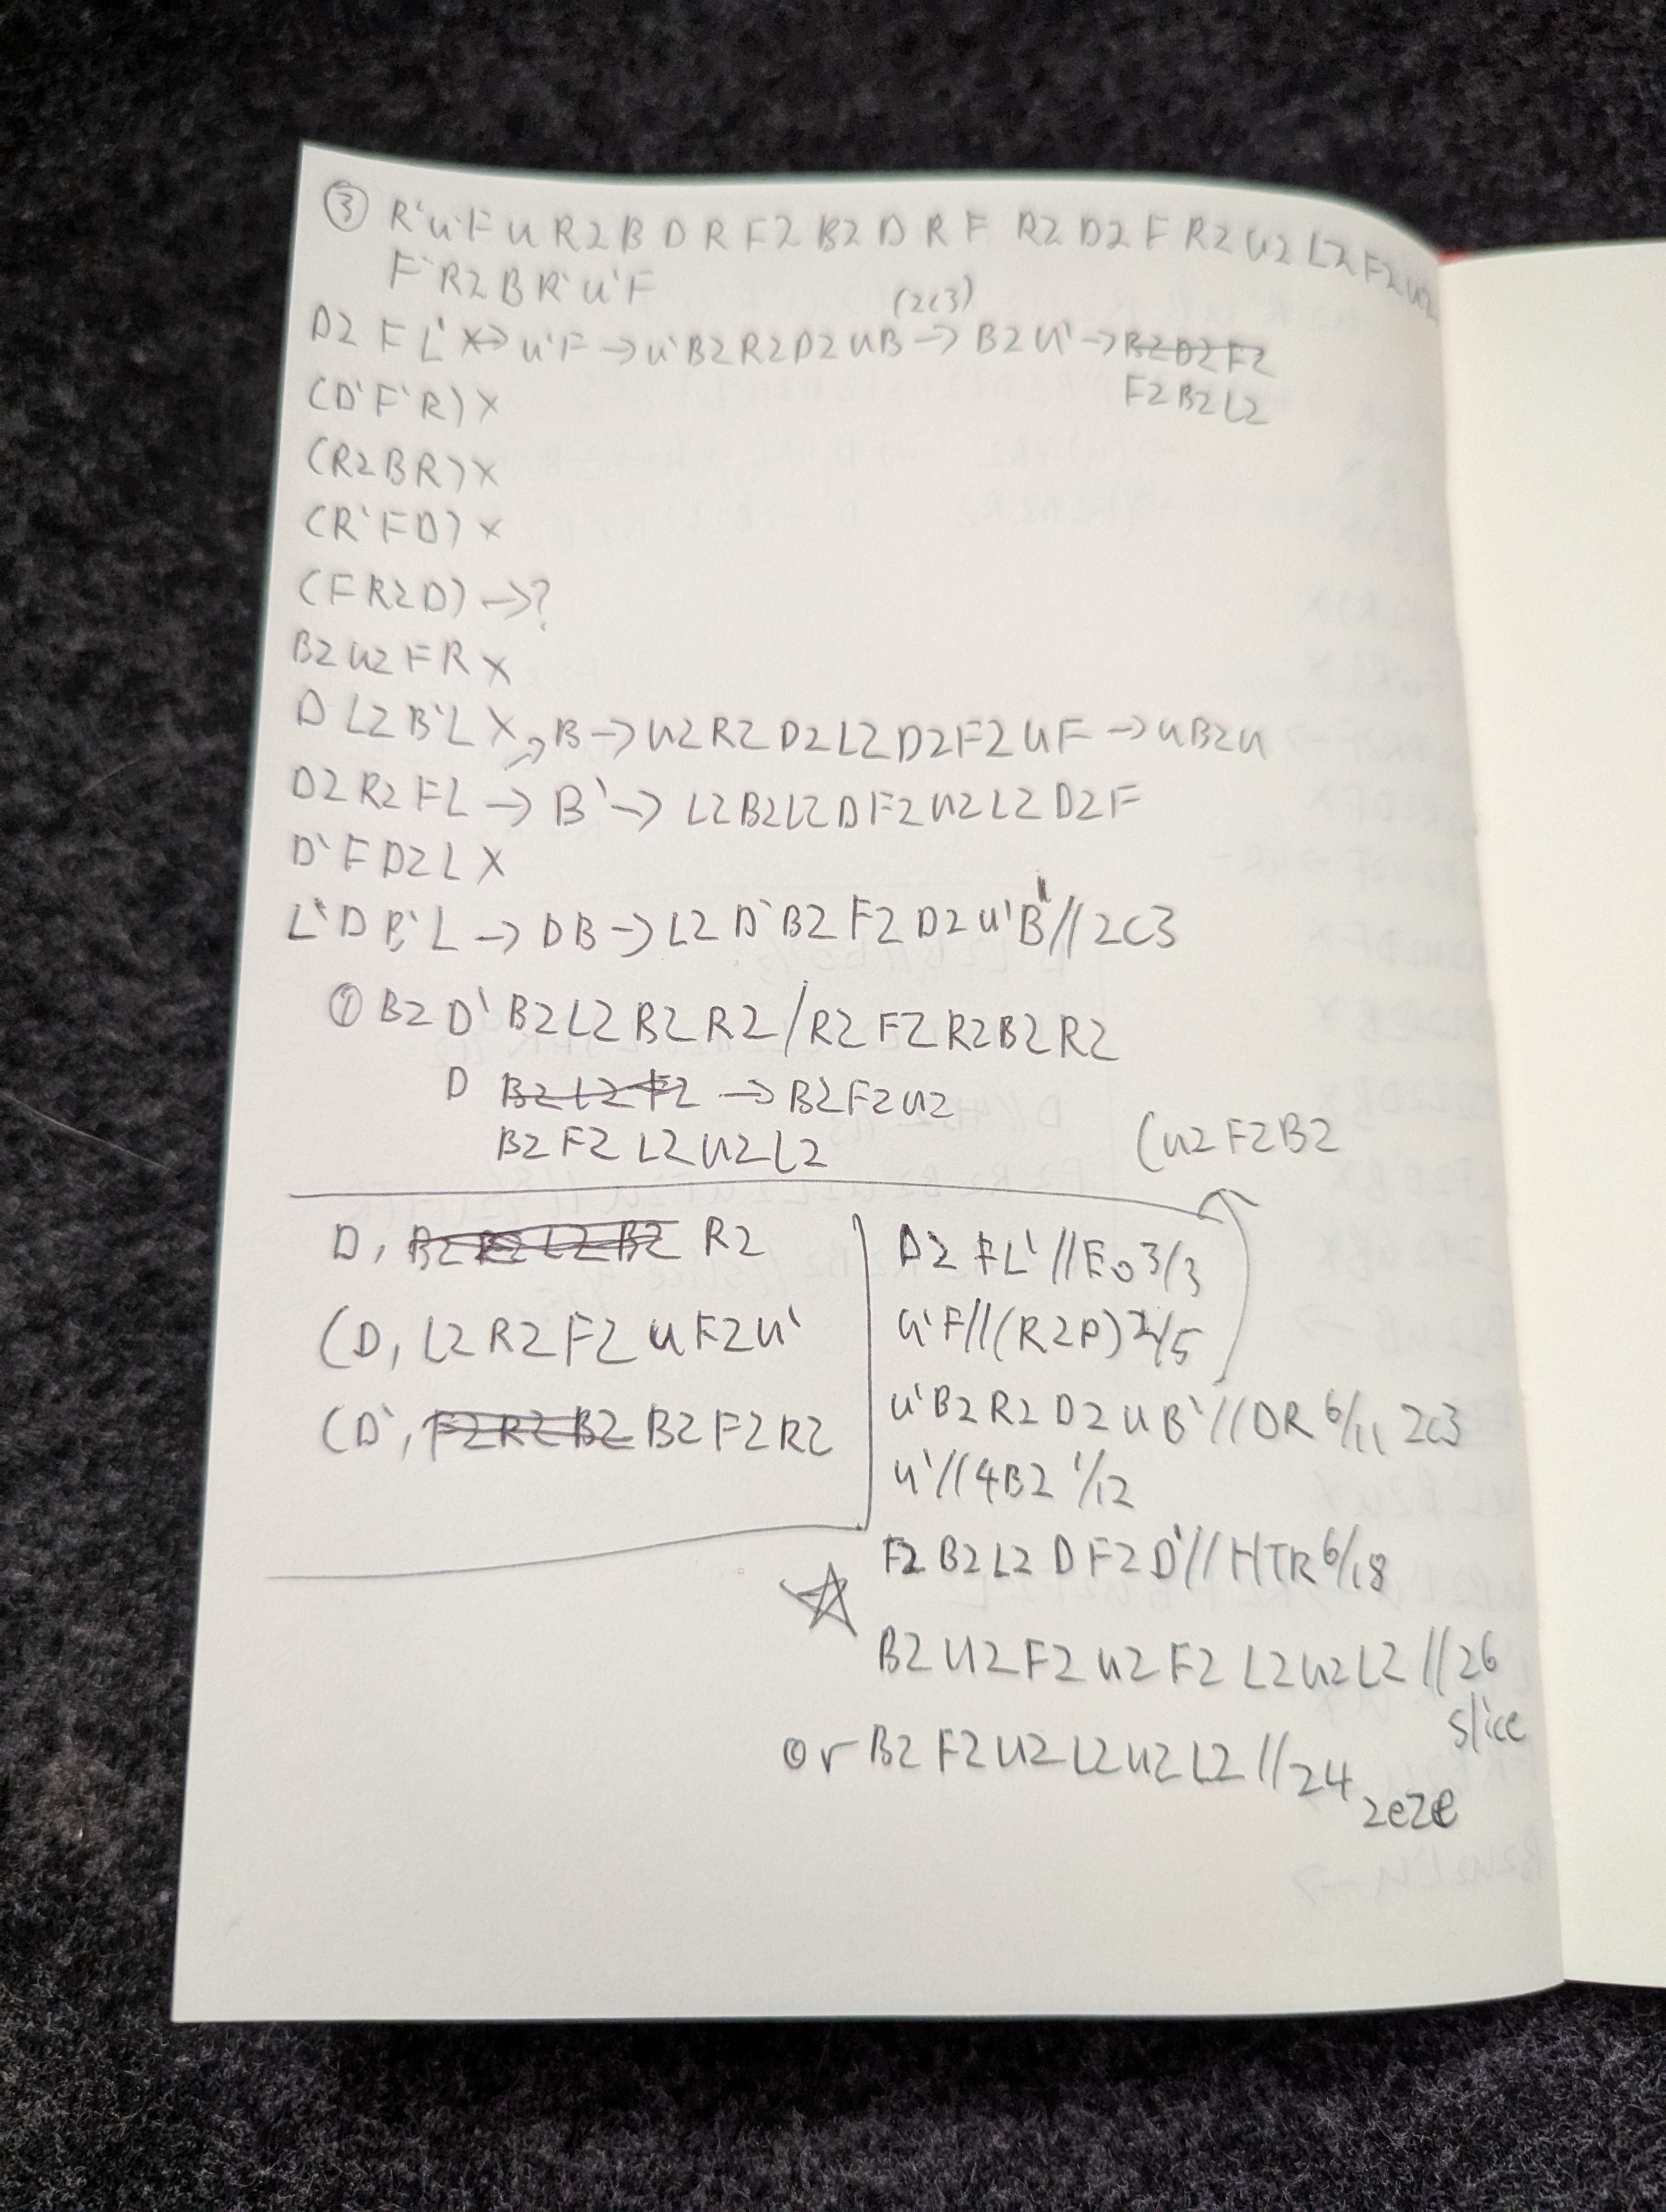 ③ R' U' F U R2 B D R F2 B2 D R F R2 D2 F R2 U2 L2 F2 U2
F' R2 B R' U' F
(2c3)
D2 F L' X→ U'F → U'B2R2D2UB → B2U' → B2D2F2
F2B2L2
(D'F'R) X
(R2BR) X
(R'FD) X
(FR2D) →?
B2U2FR X
D L2 B'L X → B → U2 R2 D2 L2 D2 F2 U F → U B2 U
D2 R2 F L → B' → L2 B2 L2 D F2 U2 L2 D2 F
D' F D2 L X
L'D B'L → DB → L2 D' B2 F2 D2 U' B' // 2C3
① B2 D' B2 L2 B2 R2 / R2 F2 R2 B2 R2
D B2 L2 F2 → B2F2U2
B2 F2 L2 U2 L2
(U2F2B2
D, R2
(D, L2 R2 F2 U F2 U'
(D', F2 R2 B2 B2 F2 R2
D2 FL' // EO 3/3
U'F // (R2P) 2/5
U'B2 R2 D2 U B' // DR 6/11 2c3
U' // 4B2 1/12
F2 B2 L2 D F2 D' // HTR 6/18
B2 U2 F2 U2 F2 L2 U2 L2 // 26
slice
or B2 F2 U2 L2 U2 L2 // 24
2e2e